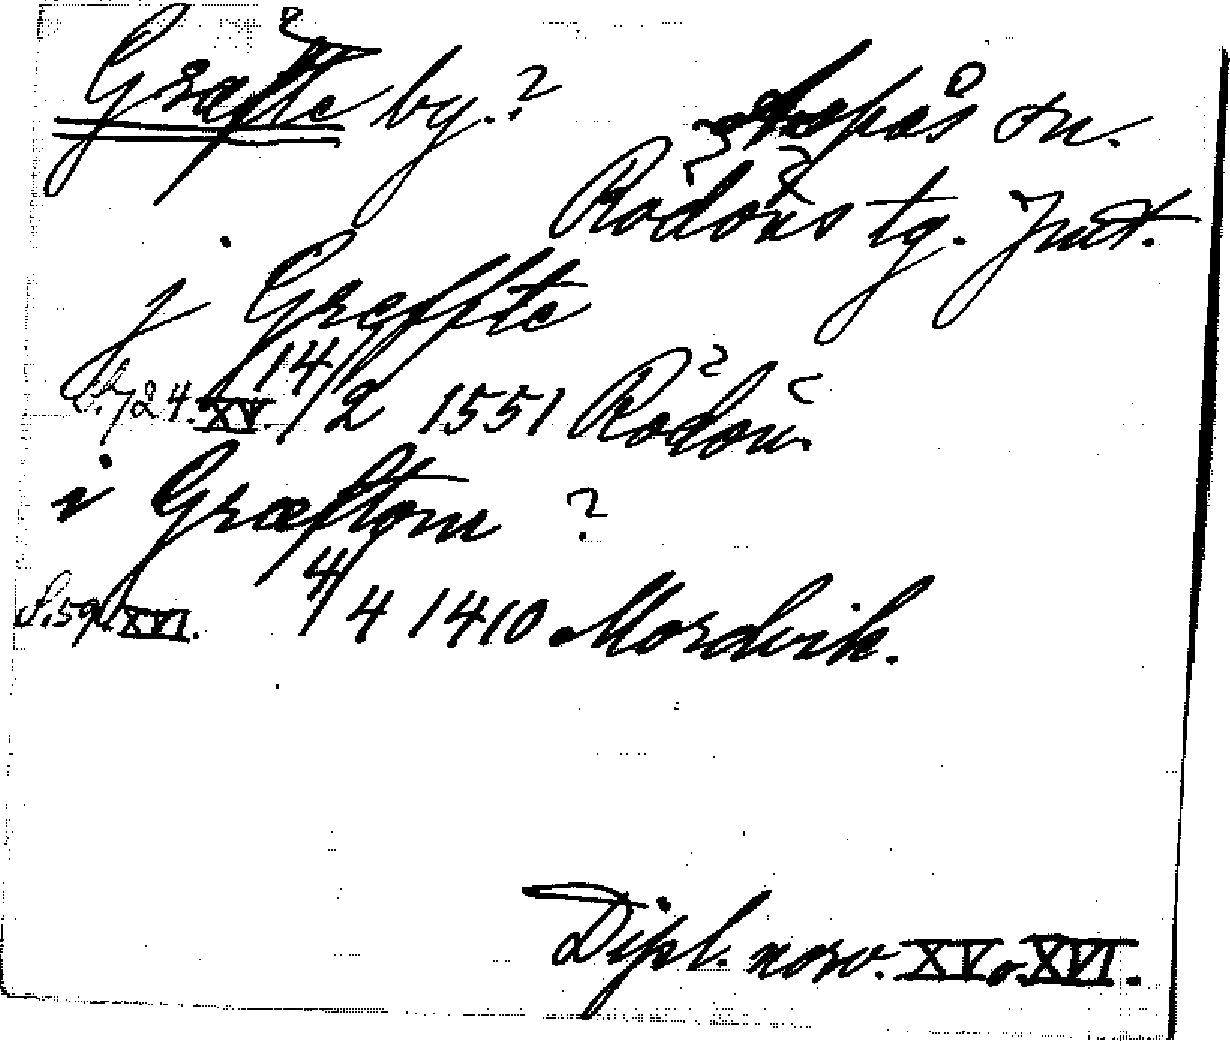 Græfte by.? Aspås sn.
Rödöns tg. Jmtl.
j Græffte
S. 724. XV. 14/2 1551 Rödön.
i Græftom ?
S. 59. XVI. 4/4 1410 Mordvik.
Dipl. norv. XV o. XVI.